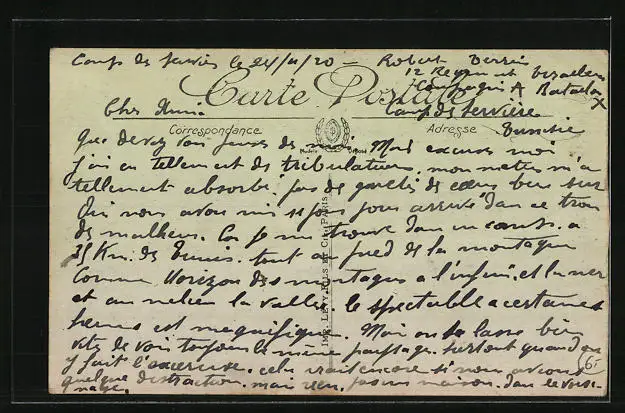 Camp de Servière le 24/11/20 — Robert
12 Régiment
Compagnie A Bataillon
Carte Postale
Cher Ami Camp de Servière
Correspondance Adresse Tunisie
que devez vous penser de moi. Mais excusez moi
j'ai eu tellement de tribulations. mon métier m'a
tellement absorbé. pas de gaietés de cœur bien sur
Oui nous avons mis 6 jours pour arriver dans ce trou
de malheur. Ca je me trouve dans un camp. a
35 Km. de Tunis. tout au pied de la montagne
Comme Horizon des montagnes a l'infini. et la mer
et au milieu la vallée. le spectacle a certaines
heures est magnifique. Mais on se lasse bien
vite de voir toujours le même paysage. surtout quand on
y fait l'exercice. cela irait encore si nous avions
quelque distraction. mais rien. pas une maison. dans le voisi
nage.
IMP. LEVY FILS ET CIE, PARIS